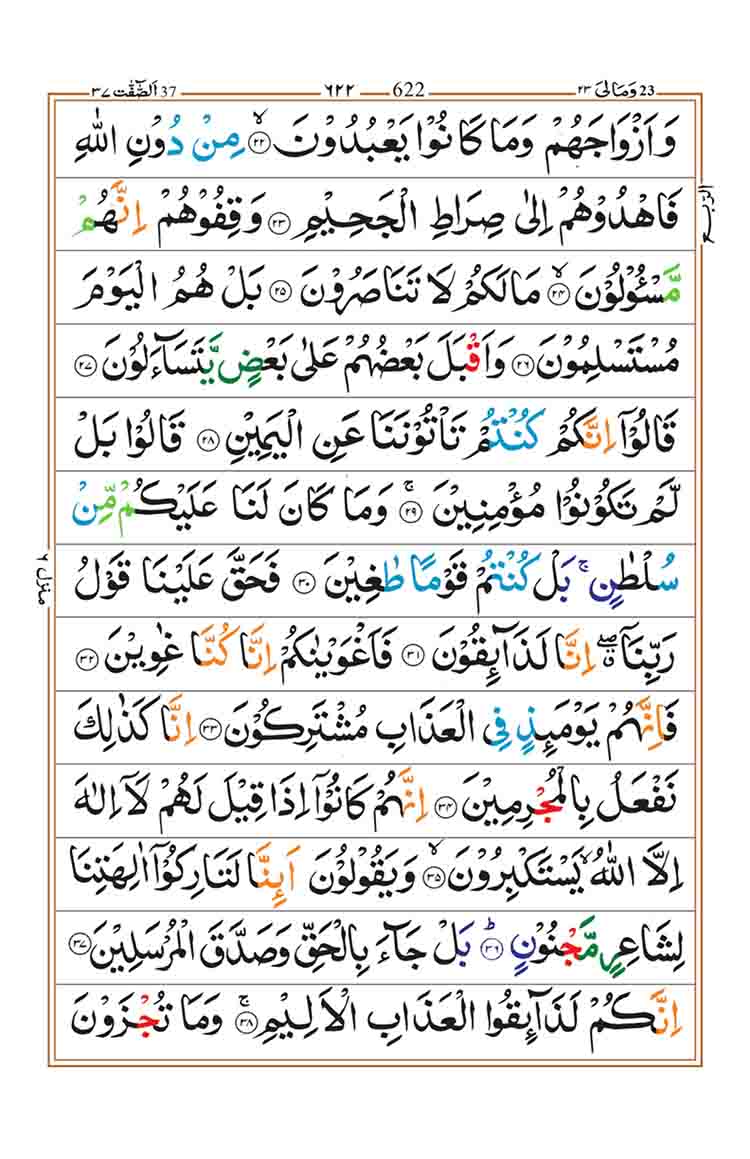 37 اَلصّٰٓفّٰت ٣٧
622 ٦٢٢
23 وَمَالِىَ ٢٣
وَاَزْوَاجَهُمْ وَمَا كَانُوْا يَعْبُدُوْنَ ۙ‏﴿۲۲﴾ مِنْ دُوْنِ اللّٰهِ
فَاهْدُوْهُمْ اِلٰى صِرَاطِ الْجَحِيْمِ ﴿۲۳﴾ وَقِفُوْهُمْ اِنَّهُمْ
الربع
مَّسْـُٔوْلُوْنَ ۙ﴿۲۴﴾ مَا لَكُمْ لَا تَنَاصَرُوْنَ ﴿۲۵﴾ بَلْ هُمُ الْيَوْمَ
مُسْتَسْلِمُوْنَ ﴿۲۶﴾ وَاَقْبَلَ بَعْضُهُمْ عَلٰى بَعْضٍ يَّتَسَآءَلُوْنَ ﴿۲۷﴾
قَالُوْۤا اِنَّكُمْ كُنْتُمْ تَاْتُوْنَنَا عَنِ الْيَمِيْنِ ﴿۲۸﴾ قَالُوْا بَلْ
لَّمْ تَكُوْنُوْا مُؤْمِنِيْنَ ۚ﴿۲۹﴾ وَمَا كَانَ لَنَا عَلَيْكُمْ مِّنْ
سُلْطٰنٍ ۚ بَلْ كُنْتُمْ قَوْمًا طٰغِيْنَ ﴿۳۰﴾ فَحَقَّ عَلَيْنَا قَوْلُ
منزل ٦
رَبِّنَاۤ ۖۗ اِنَّا لَذَآىِٕقُوْنَ ﴿۳۱﴾ فَاَغْوَيْنٰكُمْ اِنَّا كُنَّا غٰوِيْنَ ﴿۳۲﴾
فَاِنَّهُمْ يَوْمَىِٕذٍ فِى الْعَذَابِ مُشْتَرِكُوْنَ ﴿۳۳﴾ اِنَّا كَذٰلِكَ
نَفْعَلُ بِالْمُجْرِمِيْنَ ﴿۳۴﴾ اِنَّهُمْ كَانُوْۤا اِذَا قِيْلَ لَهُمْ لَاۤ اِلٰهَ
اِلَّا اللّٰهُ ۙ يَسْتَكْبِرُوْنَ ۙ﴿۳۵﴾ وَيَقُوْلُوْنَ اَىِٕنَّا لَتَارِكُوْۤا اٰلِهَتِنَا
لِشَاعِرٍ مَّجْنُوْنٍ ؕ﴿۳۶﴾ بَلْ جَآءَ بِالْحَقِّ وَصَدَّقَ الْمُرْسَلِيْنَ ﴿۳۷﴾
اِنَّكُمْ لَذَآىِٕقُوا الْعَذَابِ الْاَلِيْمِ ۚ﴿۳۸﴾ وَمَا تُجْزَوْنَ